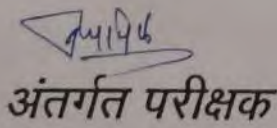 अंतर्गत परीक्षक